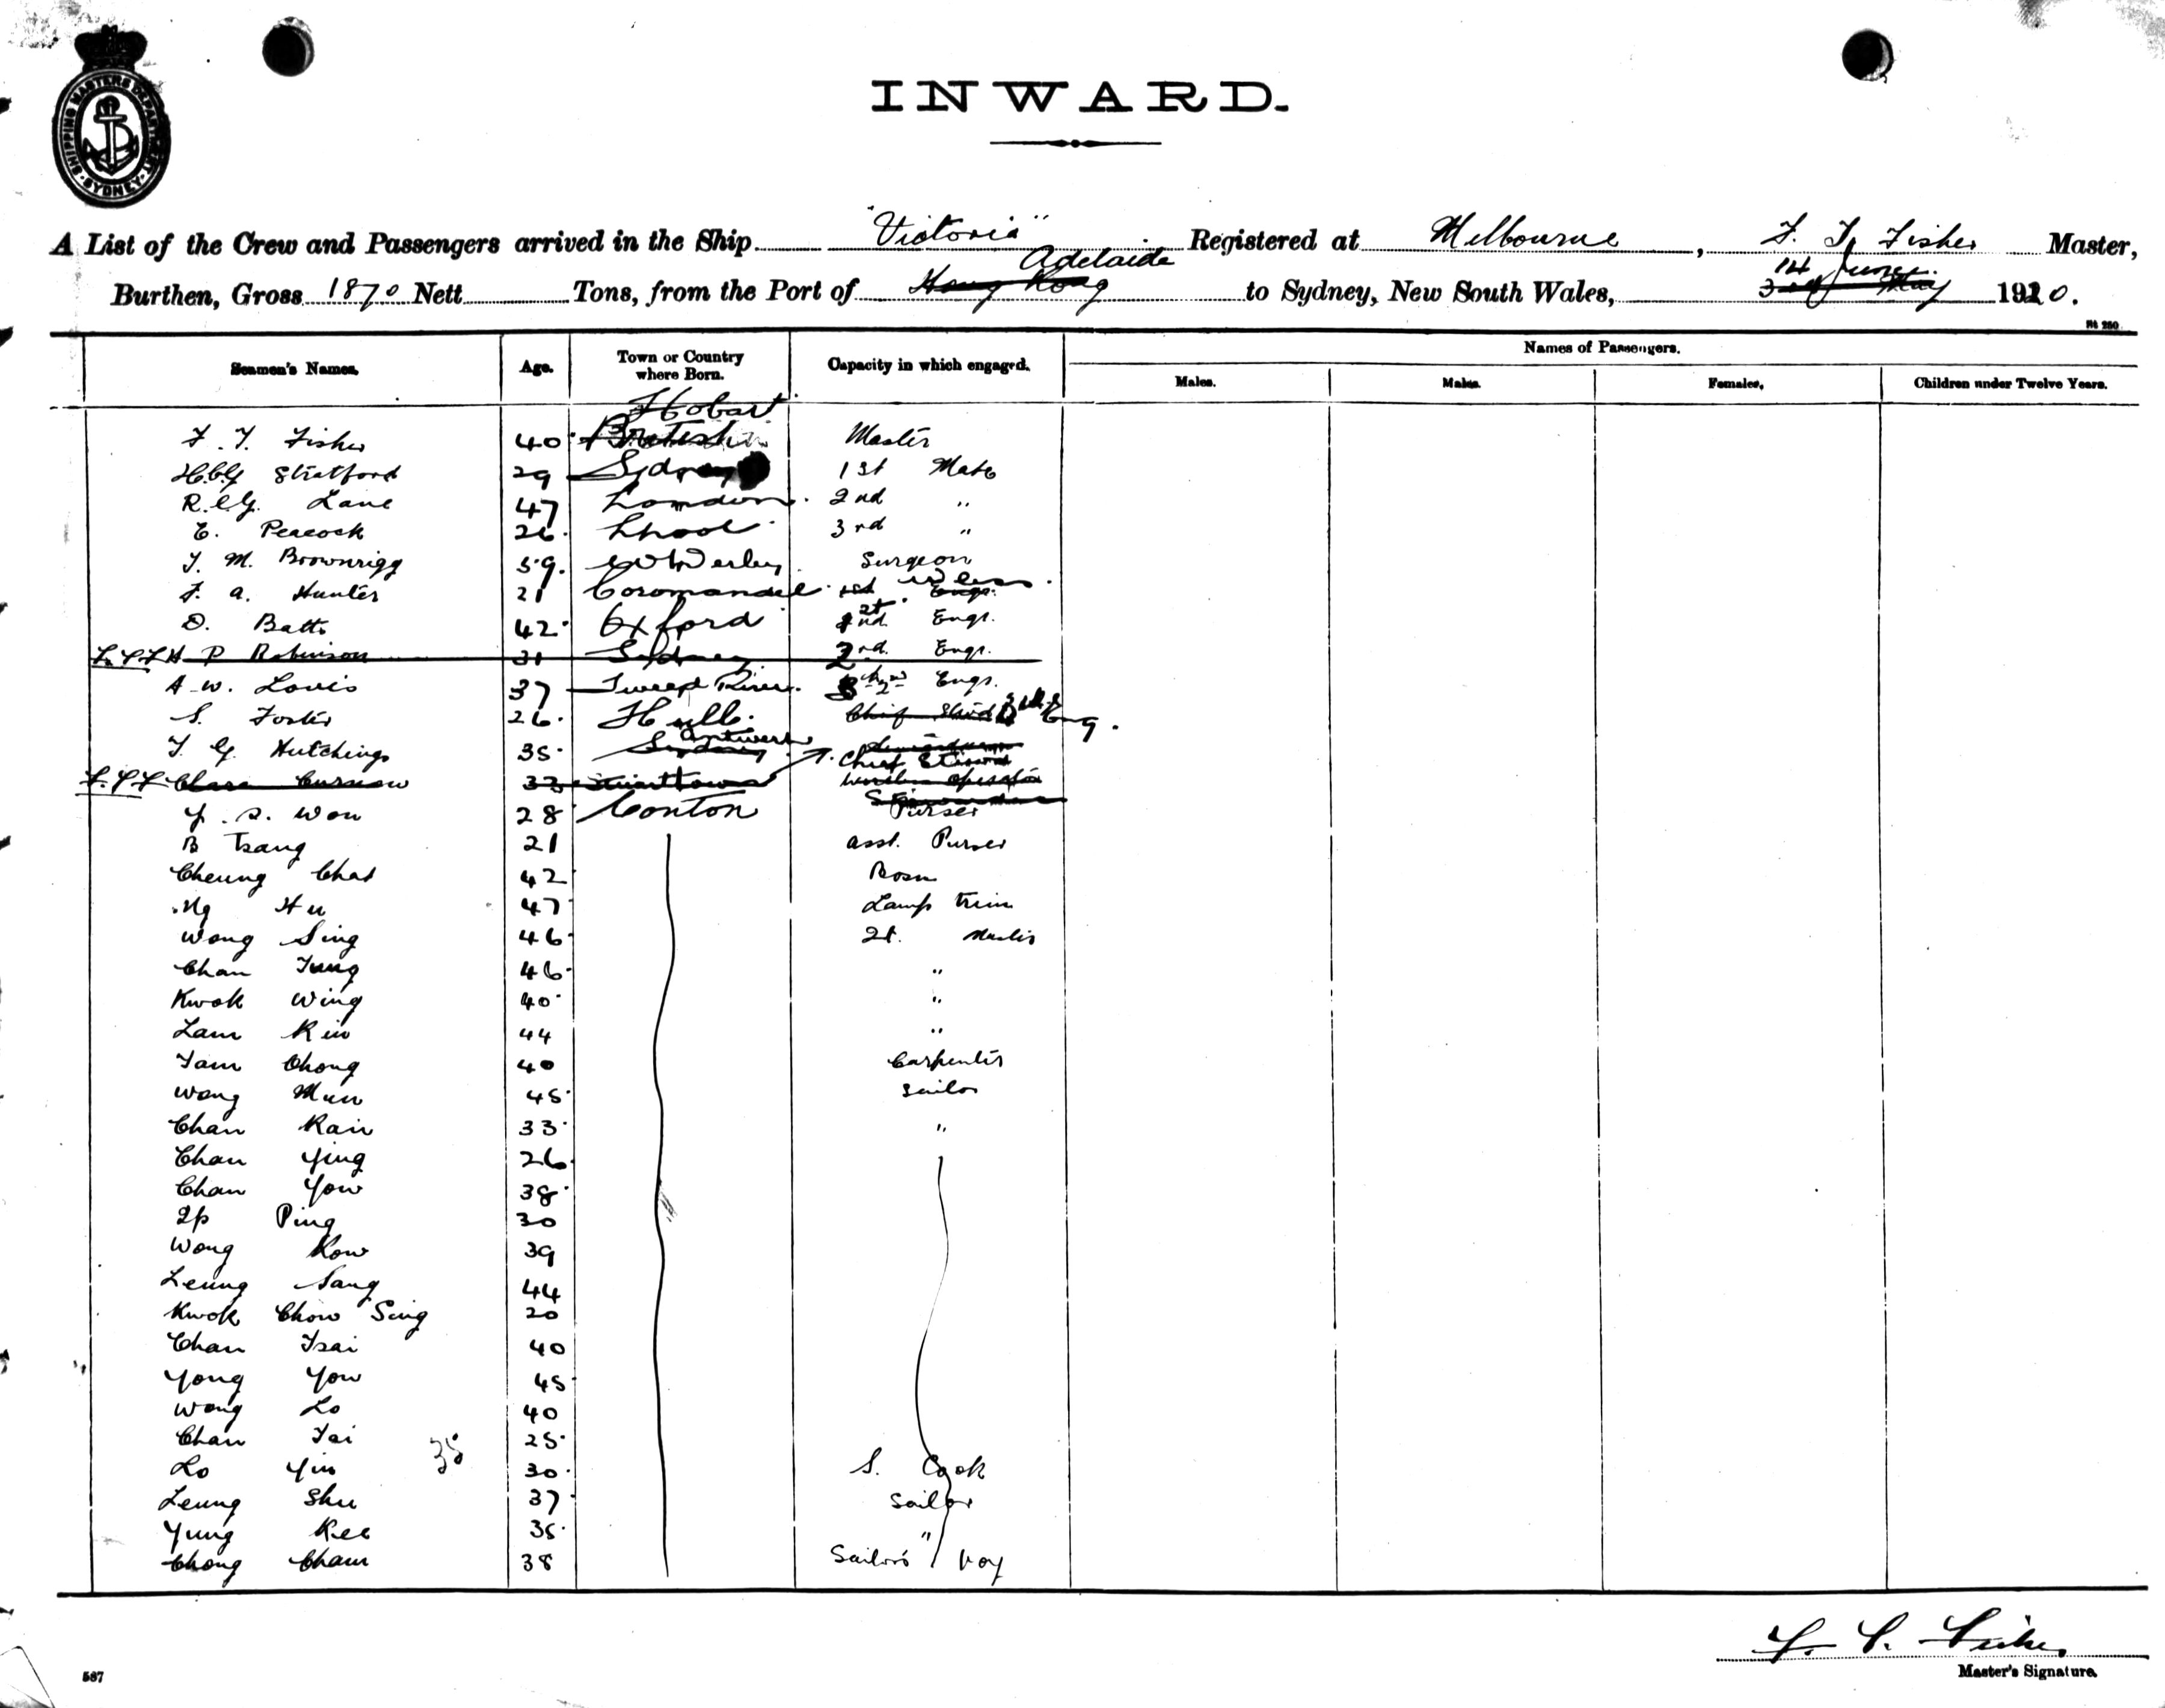 SHIPPING MASTERS DEPARTMENT SYDNEY
INWARD.
A List of the Crew and Passengers arrived in the Ship "Victoria" Registered at Melbourne, F. T. Fisher Master,
Adelaide 14 June
Burthen, Gross 1870 Nett Tons, from the Port of Hong Kong to Sydney, New South Wales, 3rd May 1920.
Seamen's Names. Age. Town or Country where Born. Capacity in which engaged. Names of Passengers.
Males. Males. Females. Children under Twelve Years.
Hobart
F. T. Fisher 40 British Master
Stratford 29 Sydney 1st Mate
Lane 47 London 2nd "
E. Peacock 26 L'pool 3rd "
T. M. Brownrigg 59 Derby Surgeon
F. A. Hunter 21 Coromandel 1st Engr. W'less
D. Batts 42 Oxford 1st Engr.
H P Robinson 31 Sydney 2nd Engr.
A. W. Lovis 37 Tweed River 2nd Engr.
S. Foster 26 Hull Chief Stwd Eng.
T. G. Hutchings 35 Sydney Antwerp Chief Steward
Clara Curnow 33 Stuarttown Wireless Operator Stewardess
Y. S. Wou 28 Conton Purser
B Tsang 21 asst. Purser
Cheung Chat 42 Bosn
Ng Hu 47 Lamp Trim
Wong Sing 46 Qt. Master
Chan Tung 46 "
Kwok Wing 40 "
Lam Kiu 44 "
Tam Chong 40 Carpenter
Wong Mun 45 Sailor
Chan Kaiu 33 "
Chan Ying 26
Chan Yow 38
Ip Ping 30
Wong Kow 39
Leung Sang 44
Kwok Chow Sing 20
Chan Tsai 40
Yong Yow 45
Wong Lo 40
Chan Tai 25
Lo Yiu 38 30 S. Cook
Leung Shu 37 Sailor
Yung Kee 35 "
Chong Cham 38 Sailors' boy
F. T. Fisher
Master's Signature.
587